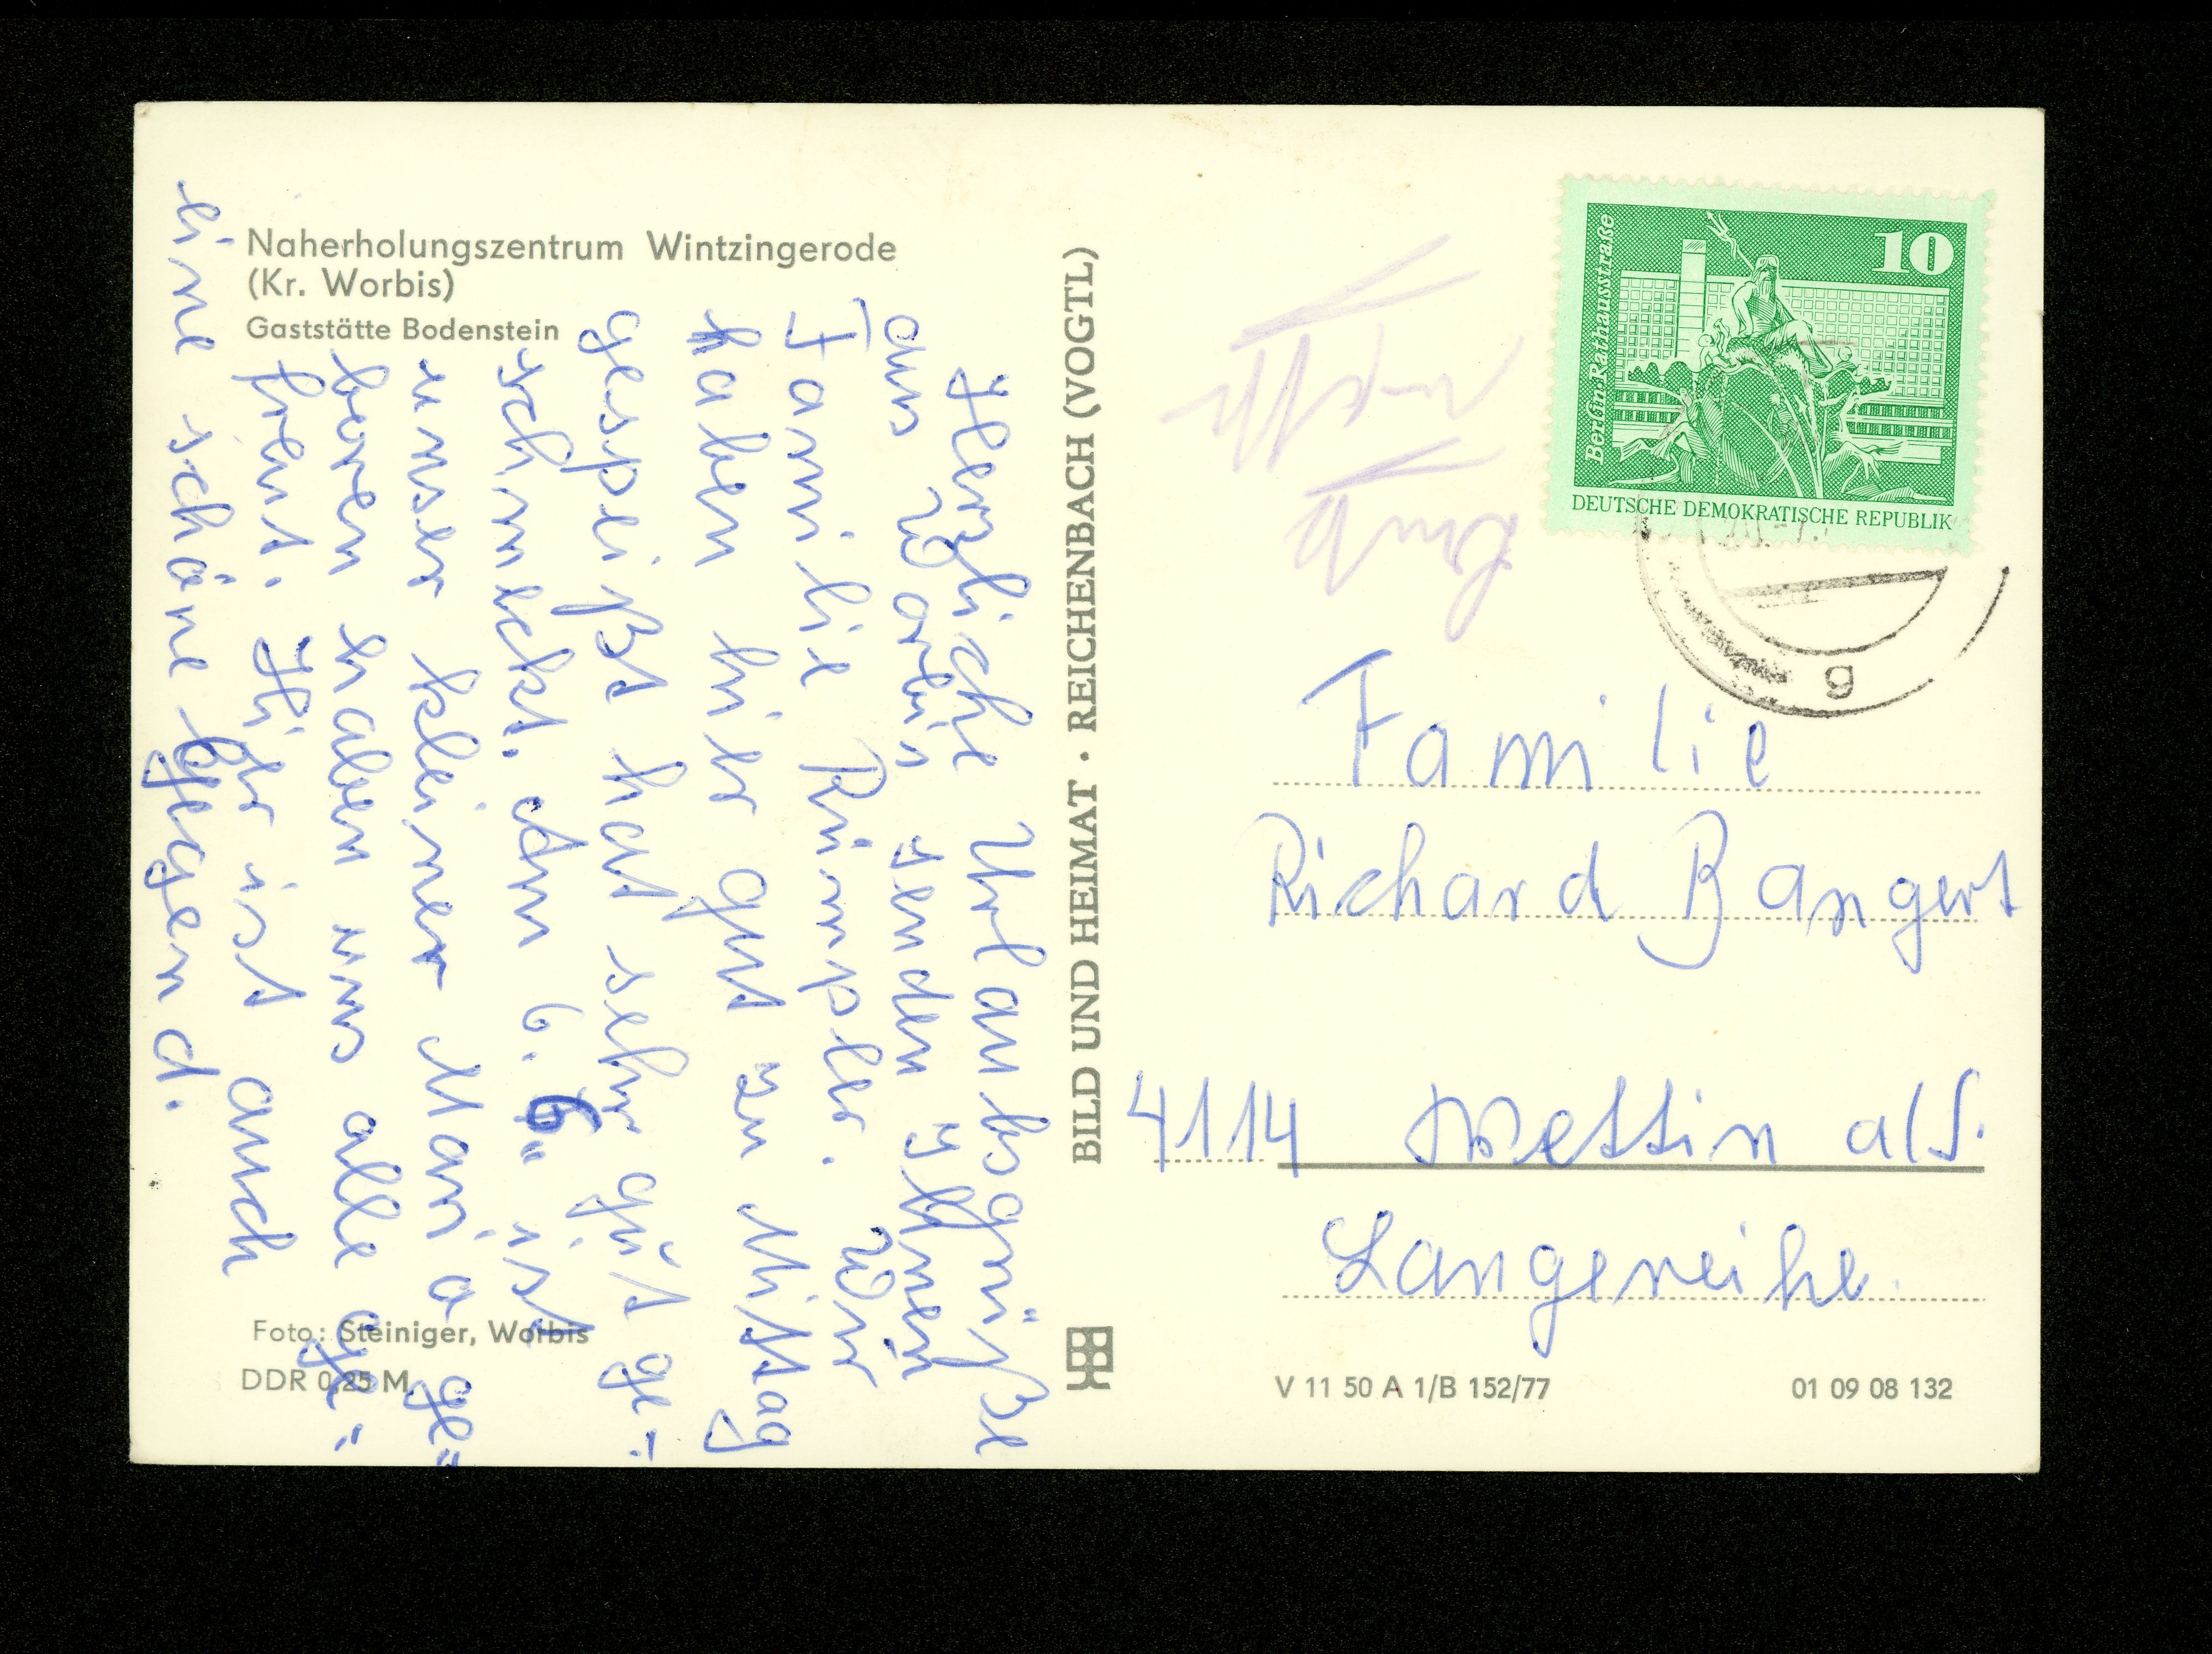 Naherholungszentrum Wintzingerode
(Kr. Worbis)
Gaststätte Bodenstein
Herzliche Urlaubsgrüße
aus Worbis senden Ihnen
Familie Rümpler. Wir
haben hier gut zu Mittag
gespeißt hat sehr gut ge-
schmekt. Am 6. 6. ist
unser kleiner Mario ge-
boren haben uns alle ge-
freut. Hier ist auch
eine schöne Gegend.
Foto: Steiniger, Worbis
DDR 0,25 M
BILD UND HEIMAT · REICHENBACH (VOGTL)
10
Berlin·Rathausstraße
DEUTSCHE DEMOKRATISCHE REPUBLIK
g
Familie
Richard Bangert
4114 Wettin a/S.
Langereihe
V 11 50 A 1/B 152/77
01 09 08 132